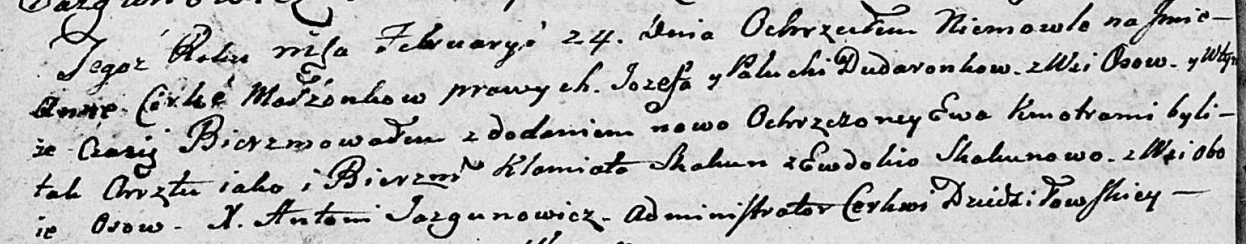 Tegoż Roku msca Februaryi 24. Dnia Ochrzciłem Niemowle na Jmie-
Anne Corkę Małżonkow prawych. Jozefa y Paluchi Dudaronkow. z Wsi Osow. y W tym
że Czasie Bierzmowałem z dodaniem nowo Ochrzczoney Ewa Kmotrami byli-
tak Chrztu iako i Bierzm Kłemiato Skakun z Ewdokio Skakunowo. z Wsi Obo
ie Osow. X. Antoni Jazgunowicz. Administrator Cerkwi Dziedziłowskiey-